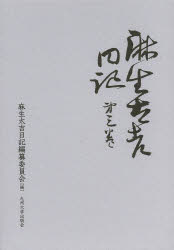 麻生太吉
日記
第三巻
麻生太吉日記編纂委員会〔編〕
九州大学出版会